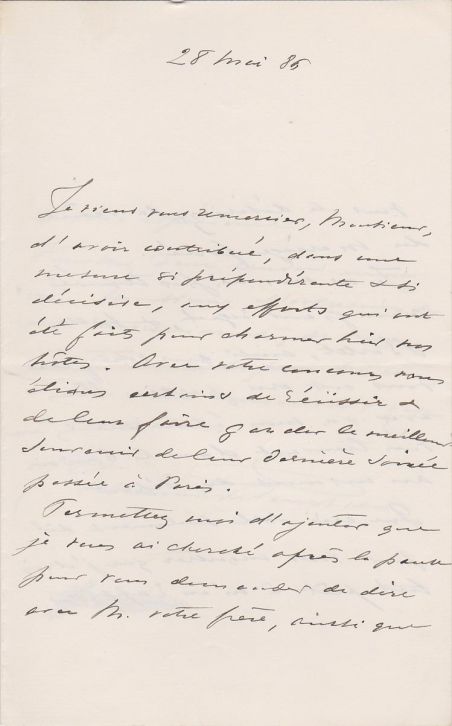 28 Mai 86
Je viens vous remercier, Monsieur,
d'avoir contribué, dans une
mesure si prépondérante & si
décisive, aux efforts qui ont
été faits pour charmer hier nos
hôtes. Avec votre concours nous
étions certains de réussir &
de leur faire garder le meilleur
souvenir de leur dernière soirée
passée à Paris.
Permettez moi d'ajouter que
je vous ai cherché après la
pour vous demander de dire
avec M. votre frère, ainsi que